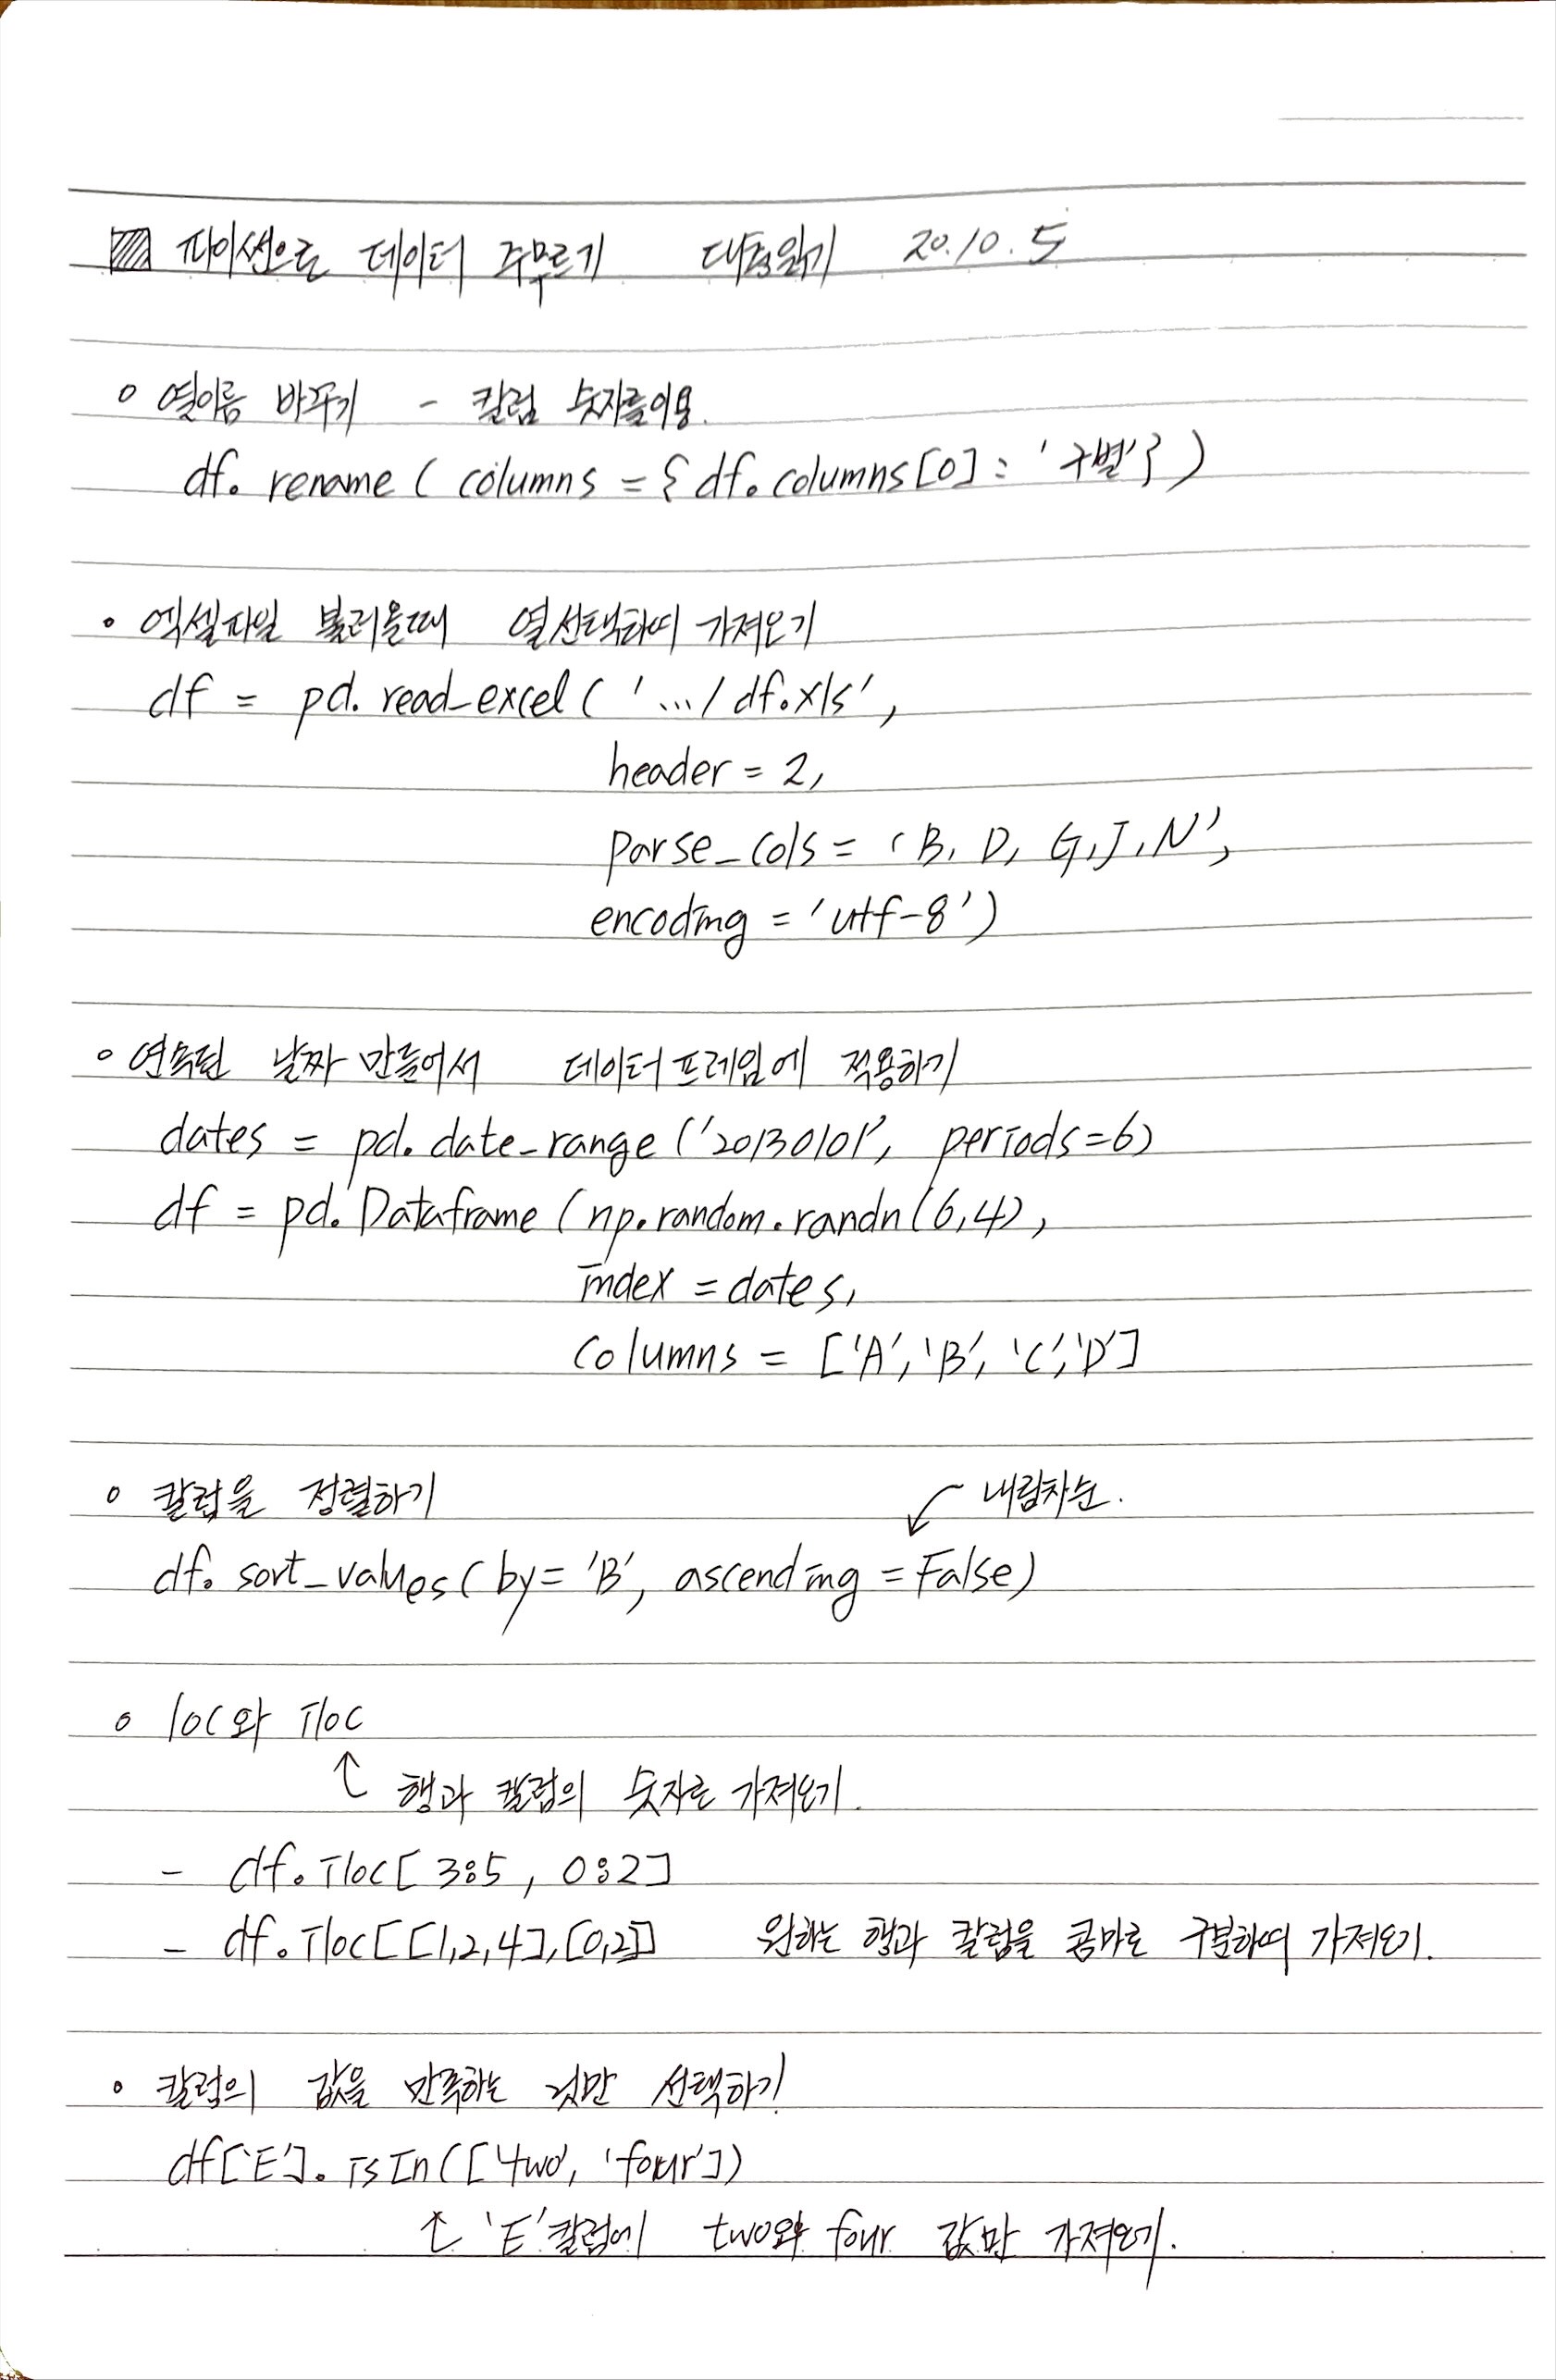 ▨ 파이썬으로 데이터 주무르기 대충읽기 20.10.5
○ 열이름 바꾸기 - 칼럼 숫자를 이용.
df. rename ( columns = { df. columns[0] : '구별' } )
• 엑셀파일 불러올때 열선택하여 가져오기
df = pd. read_excel ( '.../df.xls',
header = 2,
parse_cols = 'B, D, G, J, N',
encoding = 'utf-8')
○ 연속된 날짜 만들어서 데이터프레임에 적용하기
dates = pd. date_range ('20130101', periods=6)
df = pd. Dataframe (np.random.randn(6,4),
index = dates,
columns = ['A', 'B', 'C', 'D']
○ 칼럼을 정렬하기 ↙ 내림차순.
df. sort_values(by= 'B', ascending = False)
○ loc와 iloc
↑ 행과 칼럼의 숫자로 가져오기.
- df. iloc[ 3:5 , 0:2]
- df. iloc[[1,2,4],[0,2]] 원하는 행과 칼럼을 콤마로 구분하여 가져오기.
• 칼럼의 값을 만족하는 것만 선택하기
df['E']. isIn(['two', 'four'])
↑ 'E'칼럼에 two와 four 값만 가져오기.